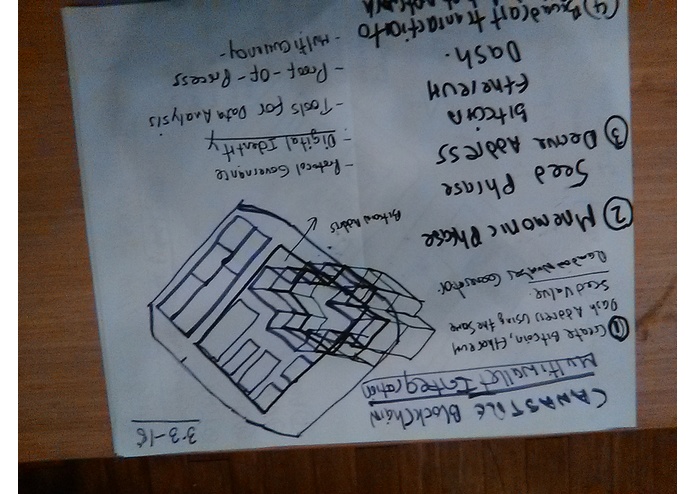 3-3-16
CANASTOLE BLOCKCHAIN
Multiwallet Integration
① Create Bitcoin, Ethereum
Dash Address Using the Same
Seed Value.
Random Number Generator
② Mnemonic Phase
Seed Phrase
③ Derive Address
Bitcoin
Ethereum
Dash.
④ Broadcast transaction to
- Protocol Governance
- Digital Identity
- Tools For Data Analysis
- Proof-Of-Process
- Multi Currency -